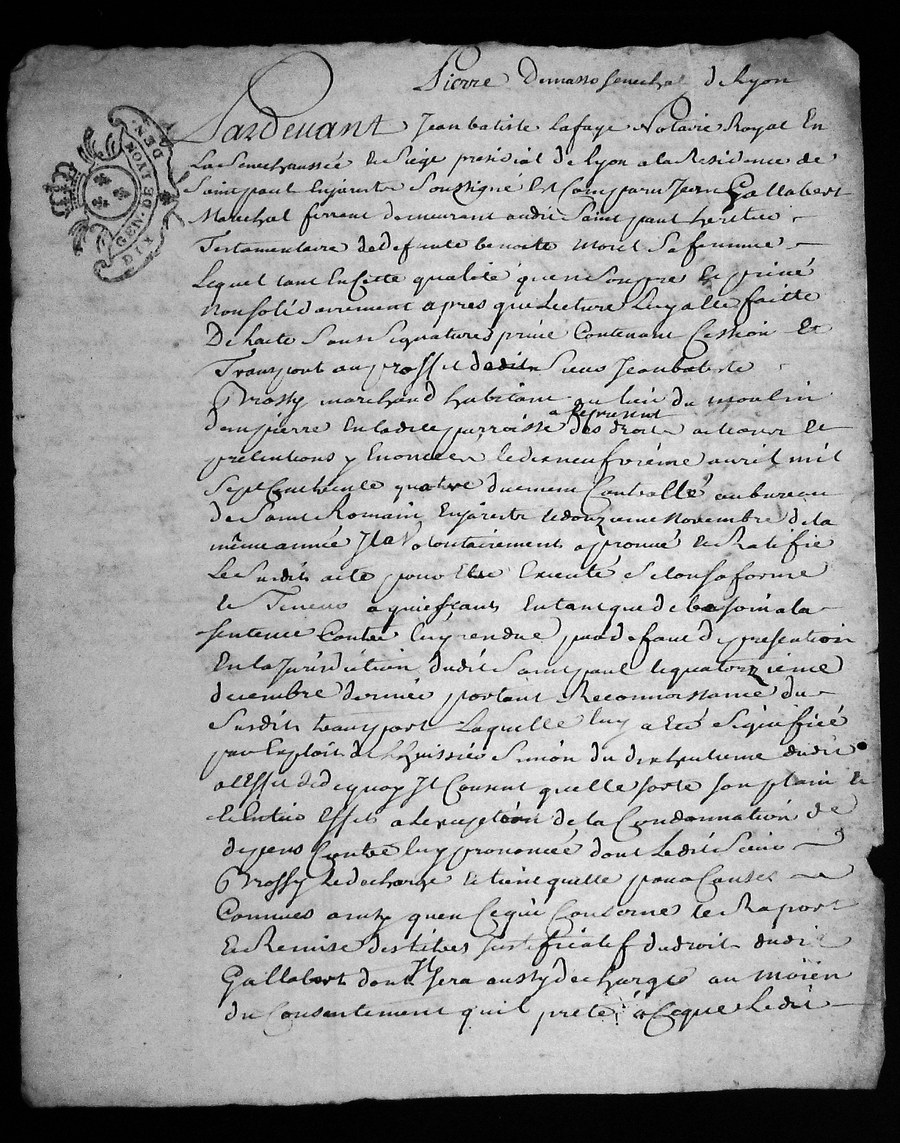 Pierre Demasso senechal de Lyon
GEN. DE LYON DEN.
DIX
Pardevant Jean batiste Lafaye Notaire Royal En
La Senechaussée et Siège presidial de Lyon a la Residence de
Saint paul En jarests Soussigné Est Comparu Jean Gallabert
Marechal ferrent demeurant audit Saint paul heritier
Testamentaire de defunte benoite Morel Sa femme
Lequel tant En Cette qualité qu'en Son propre Et privé
Non solidairement apres que Lecture Luy a Eté faitte
De Lacte Sous Signatures privé Contenant Cession Et
Transport au proffit dudit Sieur Jean batiste
Brossy marchand habitant au lieu du moulin
dampierre En ladite parroisse a sepresent des droits actions Et
pretentions y Enoncés le dixneufvième avril mil
Sept Cent huitante quatre duement Controllé au bureau
de Saint Romain En jarests le douzieme Novembre de la
même année Il a Volontairement aprouvé Et Ratifié
Le Susdit acte pour Etre Executé Selon sa forme
Et Teneur aquiesçant En tant que de besoin a la
sentence Contre Luy rendue par defaut de presention
En la Juridiction dudit Saint paul le quatorzieme
decembre dernier portant Reconnoissance du
Susdit transport Laquelle luy a Eté Signifiée
par Exploit de L'huissier Simon du dix huitieme dudit
a L'Effet de de quoy Il Consent quelle sorte son plain Et
Et Entier Effet a L'exception de la Condamnation de
depens Contre luy prononcée dont Ledit Sieur
Brossy le decharge Et tient quitte pour Causes
Connues ainsy qu'en Ce qui Concerne le Raport
Et Remise des titres Justificatif du droit dudit
Gallabert dont Il sera aussy dechargé au moïen
du Consentement quil prete a Ceque Ledit